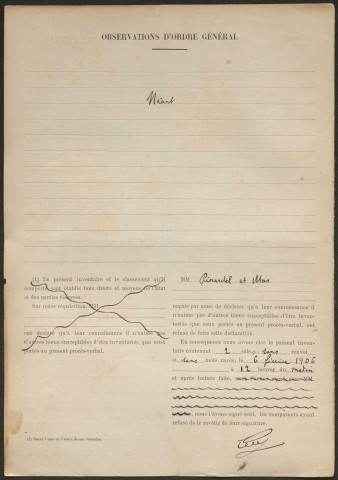 OBSERVATIONS D'ORDRE GÉNÉRAL
Néant
(1) Le présent inventaire et le classement qu'il
comporte sont établis tous droits et moyens de l'État
et des parties réservés.
Sur notre réquisition, MM.
ont déclaré qu'à leur connaissance il n'existe pas
d'autres biens susceptibles d'être inventoriés que ceux
portés au présent procès-verbal.
(1) Rayer l'une ou l'autre de ces formules.
MM. et Mas
requis par nous de déclarer qu'à leur connaissance il
n'existe pas d'autres biens susceptibles d'être inven-
toriés que ceux portés au présent procès-verbal, ont
refusé de faire cette déclaration.
En conséquence nous avons clos le présent inven-
taire contenant 2 rôles, sans renvoi
et sans mots rayés, le 6 février 1906
à 12 heures du matin
et après lecture faite,
nous l'avons signé seul, les comparants ayant
refusé de le revêtir de leur signature.